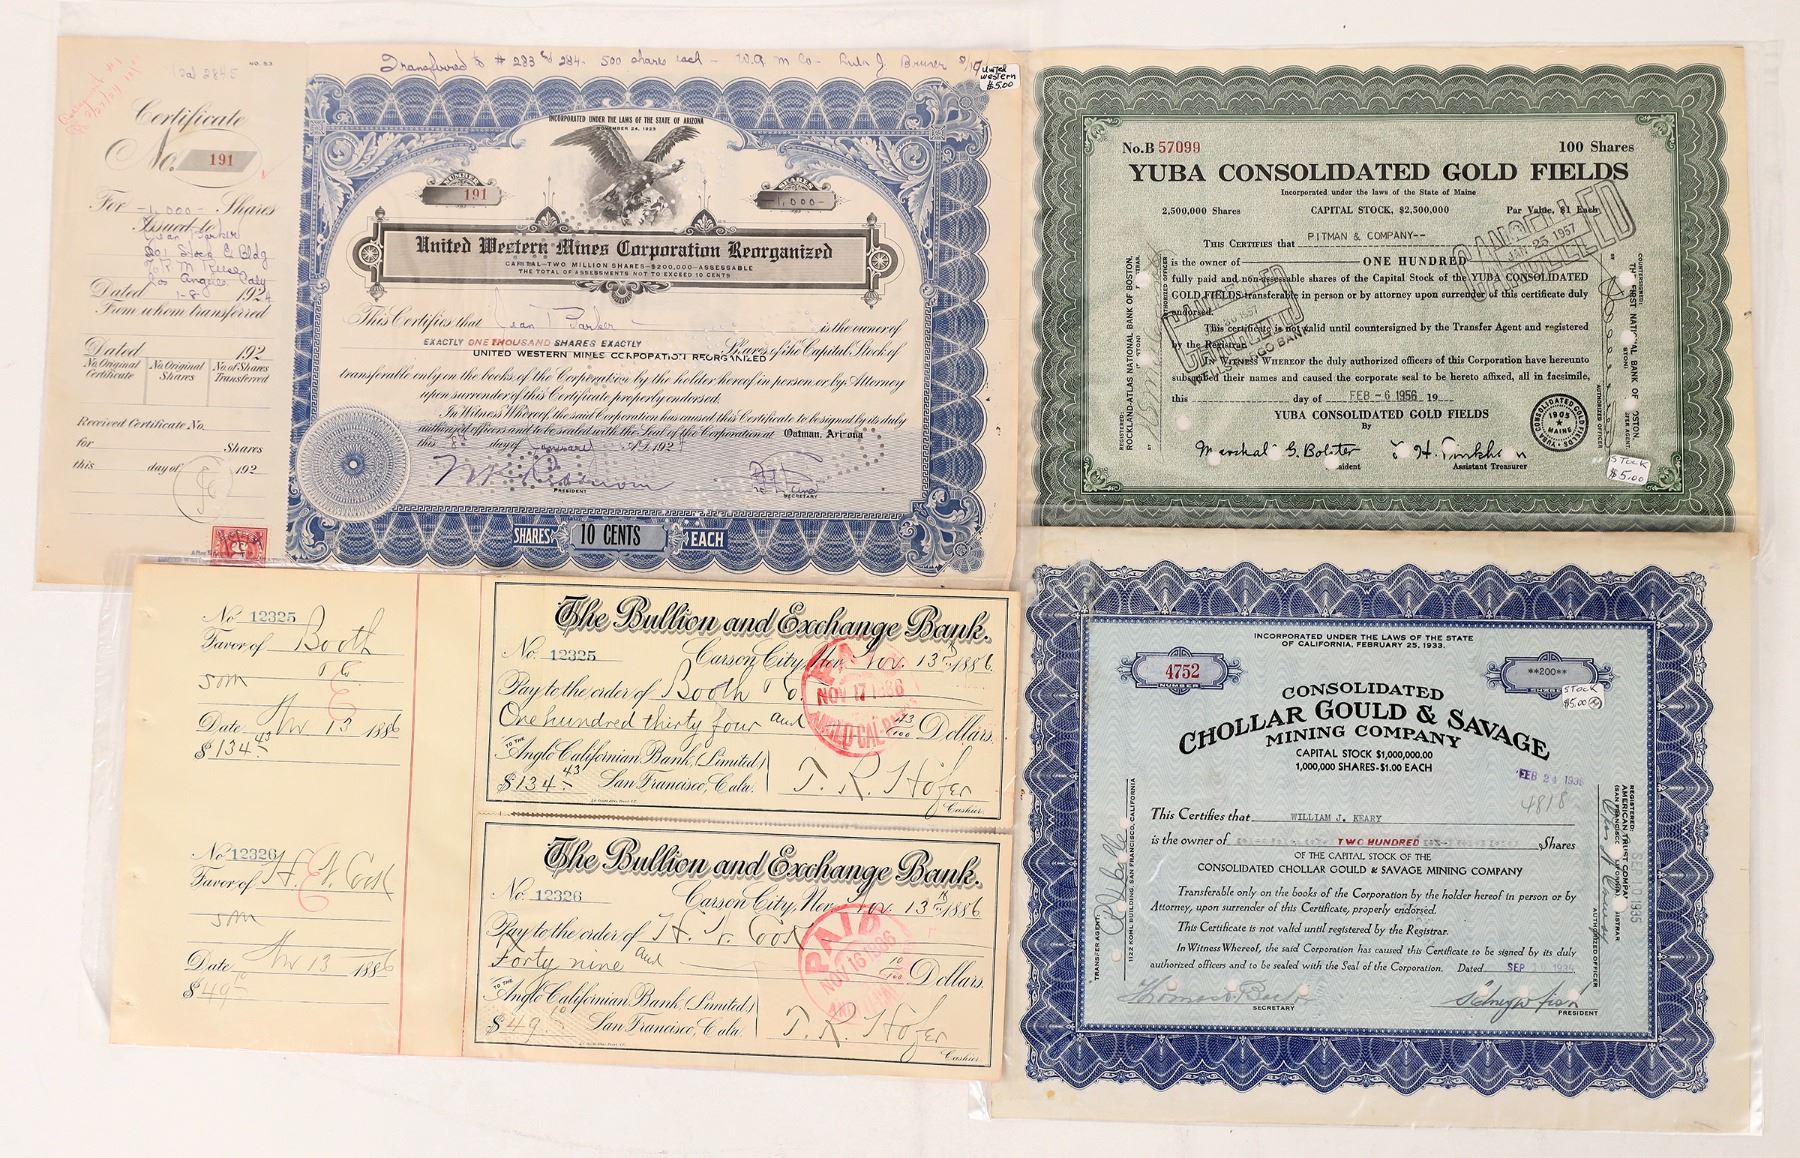 Transferred to # 283 & 284 - 500 shares each -
United
western
$5.00
NO. 53
Certificate
No. 191
For -1,000- Shares
Issued to
Jean Parker
Los Angeles
Dated 1-8 1924
From whom transferred
Dated 192
No. Original Certificate
No. Original Shares
No. of Shares Transferred
Received Certificate No.
for Shares
this day of 192
INCORPORATED UNDER THE LAWS OF THE STATE OF ARIZONA
NOVEMBER 24, 1923
NUMBER
191
SHARES
-1,000-
United Western Mines Corporation Reorganized
CAPITAL-TWO MILLION SHARES-$200,000-ASSESSABLE
THE TOTAL OF ASSESSMENTS NOT TO EXCEED 10 CENTS
This Certifies that Jean Parker is the owner of
EXACTLY ONE THOUSAND SHARES EXACTLY Shares of the Capital Stock of
UNITED WESTERN MINES CORPORATION REORGANIZED
transferable only on the books of the Corporation by the holder hereof in person or by Attorney
upon surrender of this Certificate properly endorsed.
In Witness Whereof, the said Corporation has caused this Certificate to be signed by its duly
authorized officers and to be sealed with the Seal of the Corporation at Oatman, Arizona
this day of 192
PRESIDENT
SECRETARY
SHARES 10 CENTS EACH
No. B 57099
100 Shares
YUBA CONSOLIDATED GOLD FIELDS
Incorporated under the laws of the State of Maine
2,500,000 Shares CAPITAL STOCK, $2,500,000 Par Value, $1 Each
THIS CERTIFIES that PITMAN & COMPANY--
is the owner of ONE HUNDRED
fully paid and non-assessable shares of the Capital Stock of the YUBA CONSOLIDATED
GOLD FIELDS transferable in person or by attorney upon surrender of this certificate duly
endorsed.
This certificate is not valid until countersigned by the Transfer Agent and registered
by the Registrar.
IN WITNESS WHEREOF the duly authorized officers of this Corporation have hereunto
subscribed their names and caused the corporate seal to be hereto affixed, all in facsimile,
this day of FEB -6 1956 19
YUBA CONSOLIDATED GOLD FIELDS
By
Marshal G. Bolster
Assistant Treasurer
YUBA CONSOLIDATED GOLD FIELDS
1905
MAINE
CANCELLED
JAN 25 1957
CANCELLED
REGISTERED:
ROCKLAND-ATLAS NATIONAL BANK OF BOSTON,
AUTHORIZED OFFICER
COUNTERSIGNED:
THE FIRST NATIONAL BANK OF BOSTON
AUTHORIZED OFFICER
STOCK
$5.00
No 12325
Favor of Booth
Date Nov 13 1886
$134.43
No 12326
Favor of
Date Nov 13 1886
$49.10
The Bullion and Exchange Bank.
No. 12325 Carson City, Nev. Nov. 13th 1886
Pay to the order of Booth & Co.
One hundred thirty four and 43/100 Dollars.
TO THE
Anglo Californian Bank, (Limited)
$134.43 San Francisco, Cala.
T. R. Hofer
Cashier.
NOV 17 1886
The Bullion and Exchange Bank.
No. 12326 Carson City, Nev. Nov. 13th 1886
Pay to the order of
Forty nine and 10/100 Dollars.
TO THE
Anglo Californian Bank, (Limited)
$49.10 San Francisco, Cala.
T. R. Hofer
Cashier.
PAID
NOV 16 1886
INCORPORATED UNDER THE LAWS OF THE STATE
OF CALIFORNIA, FEBRUARY 25, 1933.
4752
NUMBER
**200**
STOCK
$5.00
CONSOLIDATED
CHOLLAR GOULD & SAVAGE
MINING COMPANY
CAPITAL STOCK $1,000,000.00
1,000,000 SHARES-$1.00 EACH
4818
This Certifies that WILLIAM J. KEARY
is the owner of TWO HUNDRED Shares
OF THE CAPITAL STOCK OF THE
CONSOLIDATED CHOLLAR GOULD & SAVAGE MINING COMPANY
Transferable only on the books of the Corporation by the holder hereof in person or by
Attorney, upon surrender of this Certificate, properly endorsed.
This Certificate is not valid until registered by the Registrar.
In Witness Whereof, the said Corporation has caused this Certificate to be signed by its duly
authorized officers and to be sealed with the Seal of the Corporation. Dated SEP 1935
SECRETARY
Sidney W Fish
PRESIDENT
TRANSFER AGENT
1122 KOHL BUILDING, SAN FRANCISCO, CALIFORNIA
REGISTERED:
AMERICAN TRUST COMPANY
AUTHORIZED OFFICER